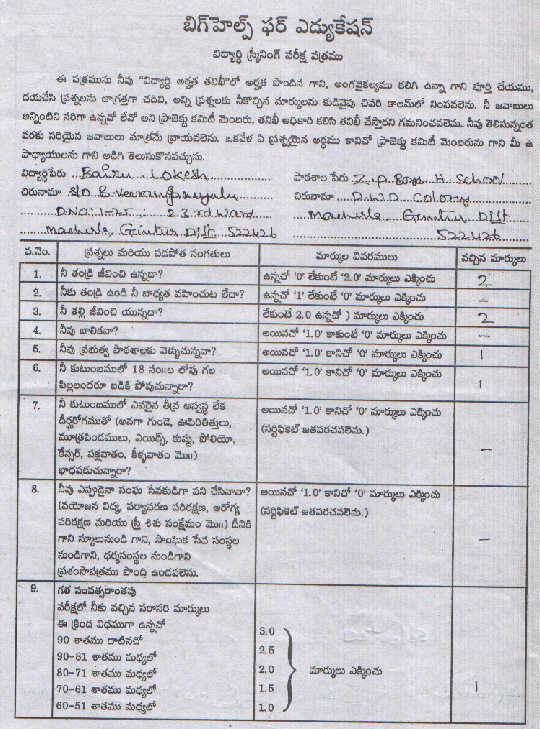 బిగ్‌హెల్ప్ ఫర్ ఎడ్యుకేషన్
విద్యార్థి స్క్రీనింగ్ పరీక్ష పత్రము
ఈ పత్రమును నీవు "విద్యార్థి అర్హత తనిఖీ"లో అర్హత పొందిన గాని, అంగవైకల్యము కలిగి ఉన్నా గాని పూర్తి చేయుము,
దయచేసి ప్రశ్నలను జాగ్రత్తగా చదివి, అన్ని ప్రశ్నలకు నీకొచ్చిన మార్కులను కుడివైపు చివరి కాలమ్‌లో నింపవలెను. నీ జవాబులు
అన్నింటిని సరిగా ఉన్నవో లేవో అని ప్రాజెక్టు కమిటీ మెంబరు, తనిఖీ అధికారి కలిసి తనిఖీ చేస్తారని గమనించవలెను. నీవు తెలిసున్నంత
వరకు సరియైన జవాబులు మాత్రమే వ్రాయవలెను. ఒకవేళ ఏ ప్రశ్నయైన అర్థము కానిచో ప్రాజెక్టు కమిటీ మెంబరును గాని మీ ఉ
పాధ్యాయులను గాని అడిగి తెలుసుకొనవచ్చును.
విద్యార్థిపేరు Lokesh పాఠశాల పేరు Z.P. Boys H. School
చిరునామా S/O చిరునామా P.W.D Colony
D.NO 23rd ward Macherla Guntur Dist
Macherla Guntur Dist 522426 522426
ప.నెం. ప్రశ్నలు మరియు పడపోత సంగతులు మార్కుల వివరములు వచ్చిన మార్కులు
1. నీ తండ్రి జీవించి ఉన్నడా? ఉన్నచో '0' లేకుంటే '2.0' మార్కులు ఎక్కించు 2
2. నీకు తండ్రి ఉండి నీ బాధ్యత వహించుట లేదా? ఉన్నచో '1' లేకుంటే '0' మార్కులు ఎక్కించు –
3. నీ తల్లి జీవించి యున్నదా? లేకుంటే 2.0 ఉన్నచో ) మార్కులు ఎక్కించు 2
4. నీవు బాలికవా? అయినచో '1.0' కాకుంటే '0' మార్కులు ఎక్కించు –
5. నీవు ప్రభుత్వ పాఠశాలకు వెళ్ళుచున్నవా? అయినచో '1.0' కానిచో '0' మార్కులు ఎక్కించు 1
6. నీ కుటుంబములో 18 సం॥ల లోపు గల అయినచో '1.0' కానిచో '0' మార్కులు ఎక్కించు 1
పిల్లలందరూ బడికి పోవుచున్నారా?
7. నీ కుటుంబములో ఎవరైన తీవ్ర అస్వస్థ లేక అయినచో '1.0' కానిచో '0' మార్కులు ఎక్కించు
దీర్ఘరోగముతో (అనగా గుండె, ఊపిరితిత్తులు, (సర్టిఫికెట్ జతపరచవలెను.)
మూత్రపిండములు, ఎయిడ్స్, కుష్టు, పోలియో,
కేన్సర్, పక్షవాతం, కీళ్ళవాతం మొ॥) –
భాధపడుచున్నారా?
8. నీవు ఎప్పుడైనా సంఘ సేవకుడిగా పని చేసినావా? అయినచో '1.0' కానిచో '0' మార్కులు ఎక్కించు
(వయోజన విద్య, పర్యావరణ పరిరక్షణ, ఆరోగ్య (సర్టిఫికెట్ జతపరచవలెను.)
పరిరక్షణ మరియు స్త్రీ శిశు సంక్షేమం మొ॥) దీనికి
గాని స్కూలునుండి గాని, సాంఘిక సేవ సంస్థల –
నుండిగాని, ధర్మసంస్థల నుండిగాని
ప్రశంసాపత్రము పొంది ఉండవలెను.
9. గత సంవత్సరాంతపు
పరీక్షలో నీకు వచ్చిన సరాసరి మార్కులు
ఈ క్రింద విధముగా ఉన్నచో
90 శాతము దాటినచో 3.0
90-81 శాతము మధ్యలో 2.5
80-71 శాతము మధ్యలో 2.0 మార్కులు ఎక్కించు
70-61 శాతము మధ్యలో 1.5 1
60-51 శాతము మధ్యలో 1.0